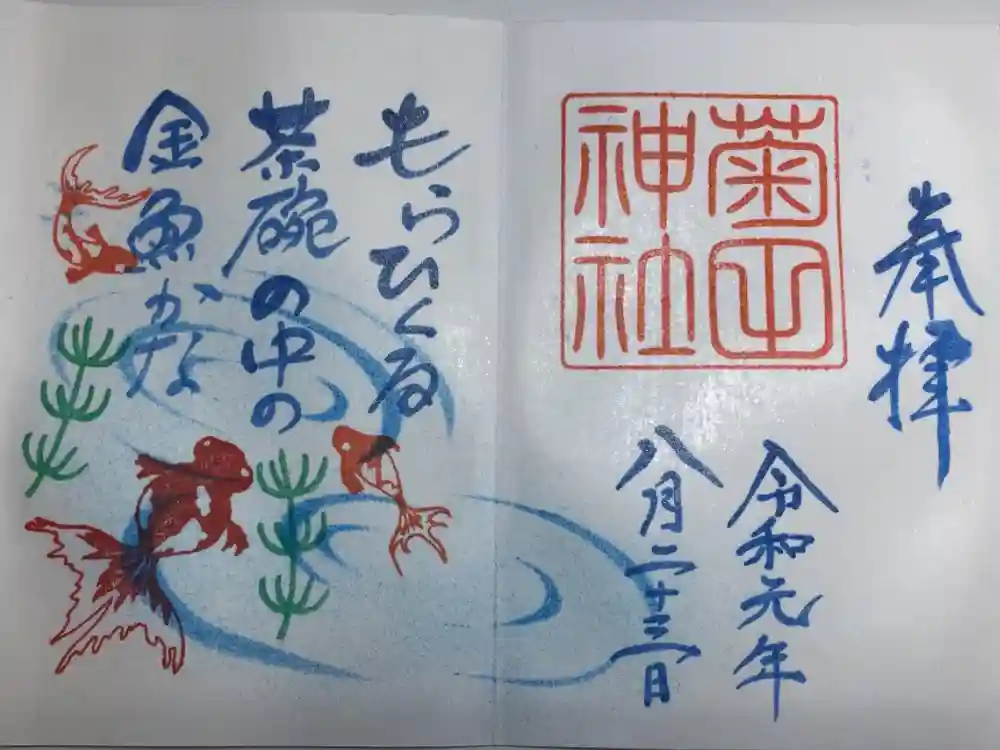 奉拝
菊田
神社
令和元年
八月二十三日
もらひくる
茶碗の中の
金魚かな